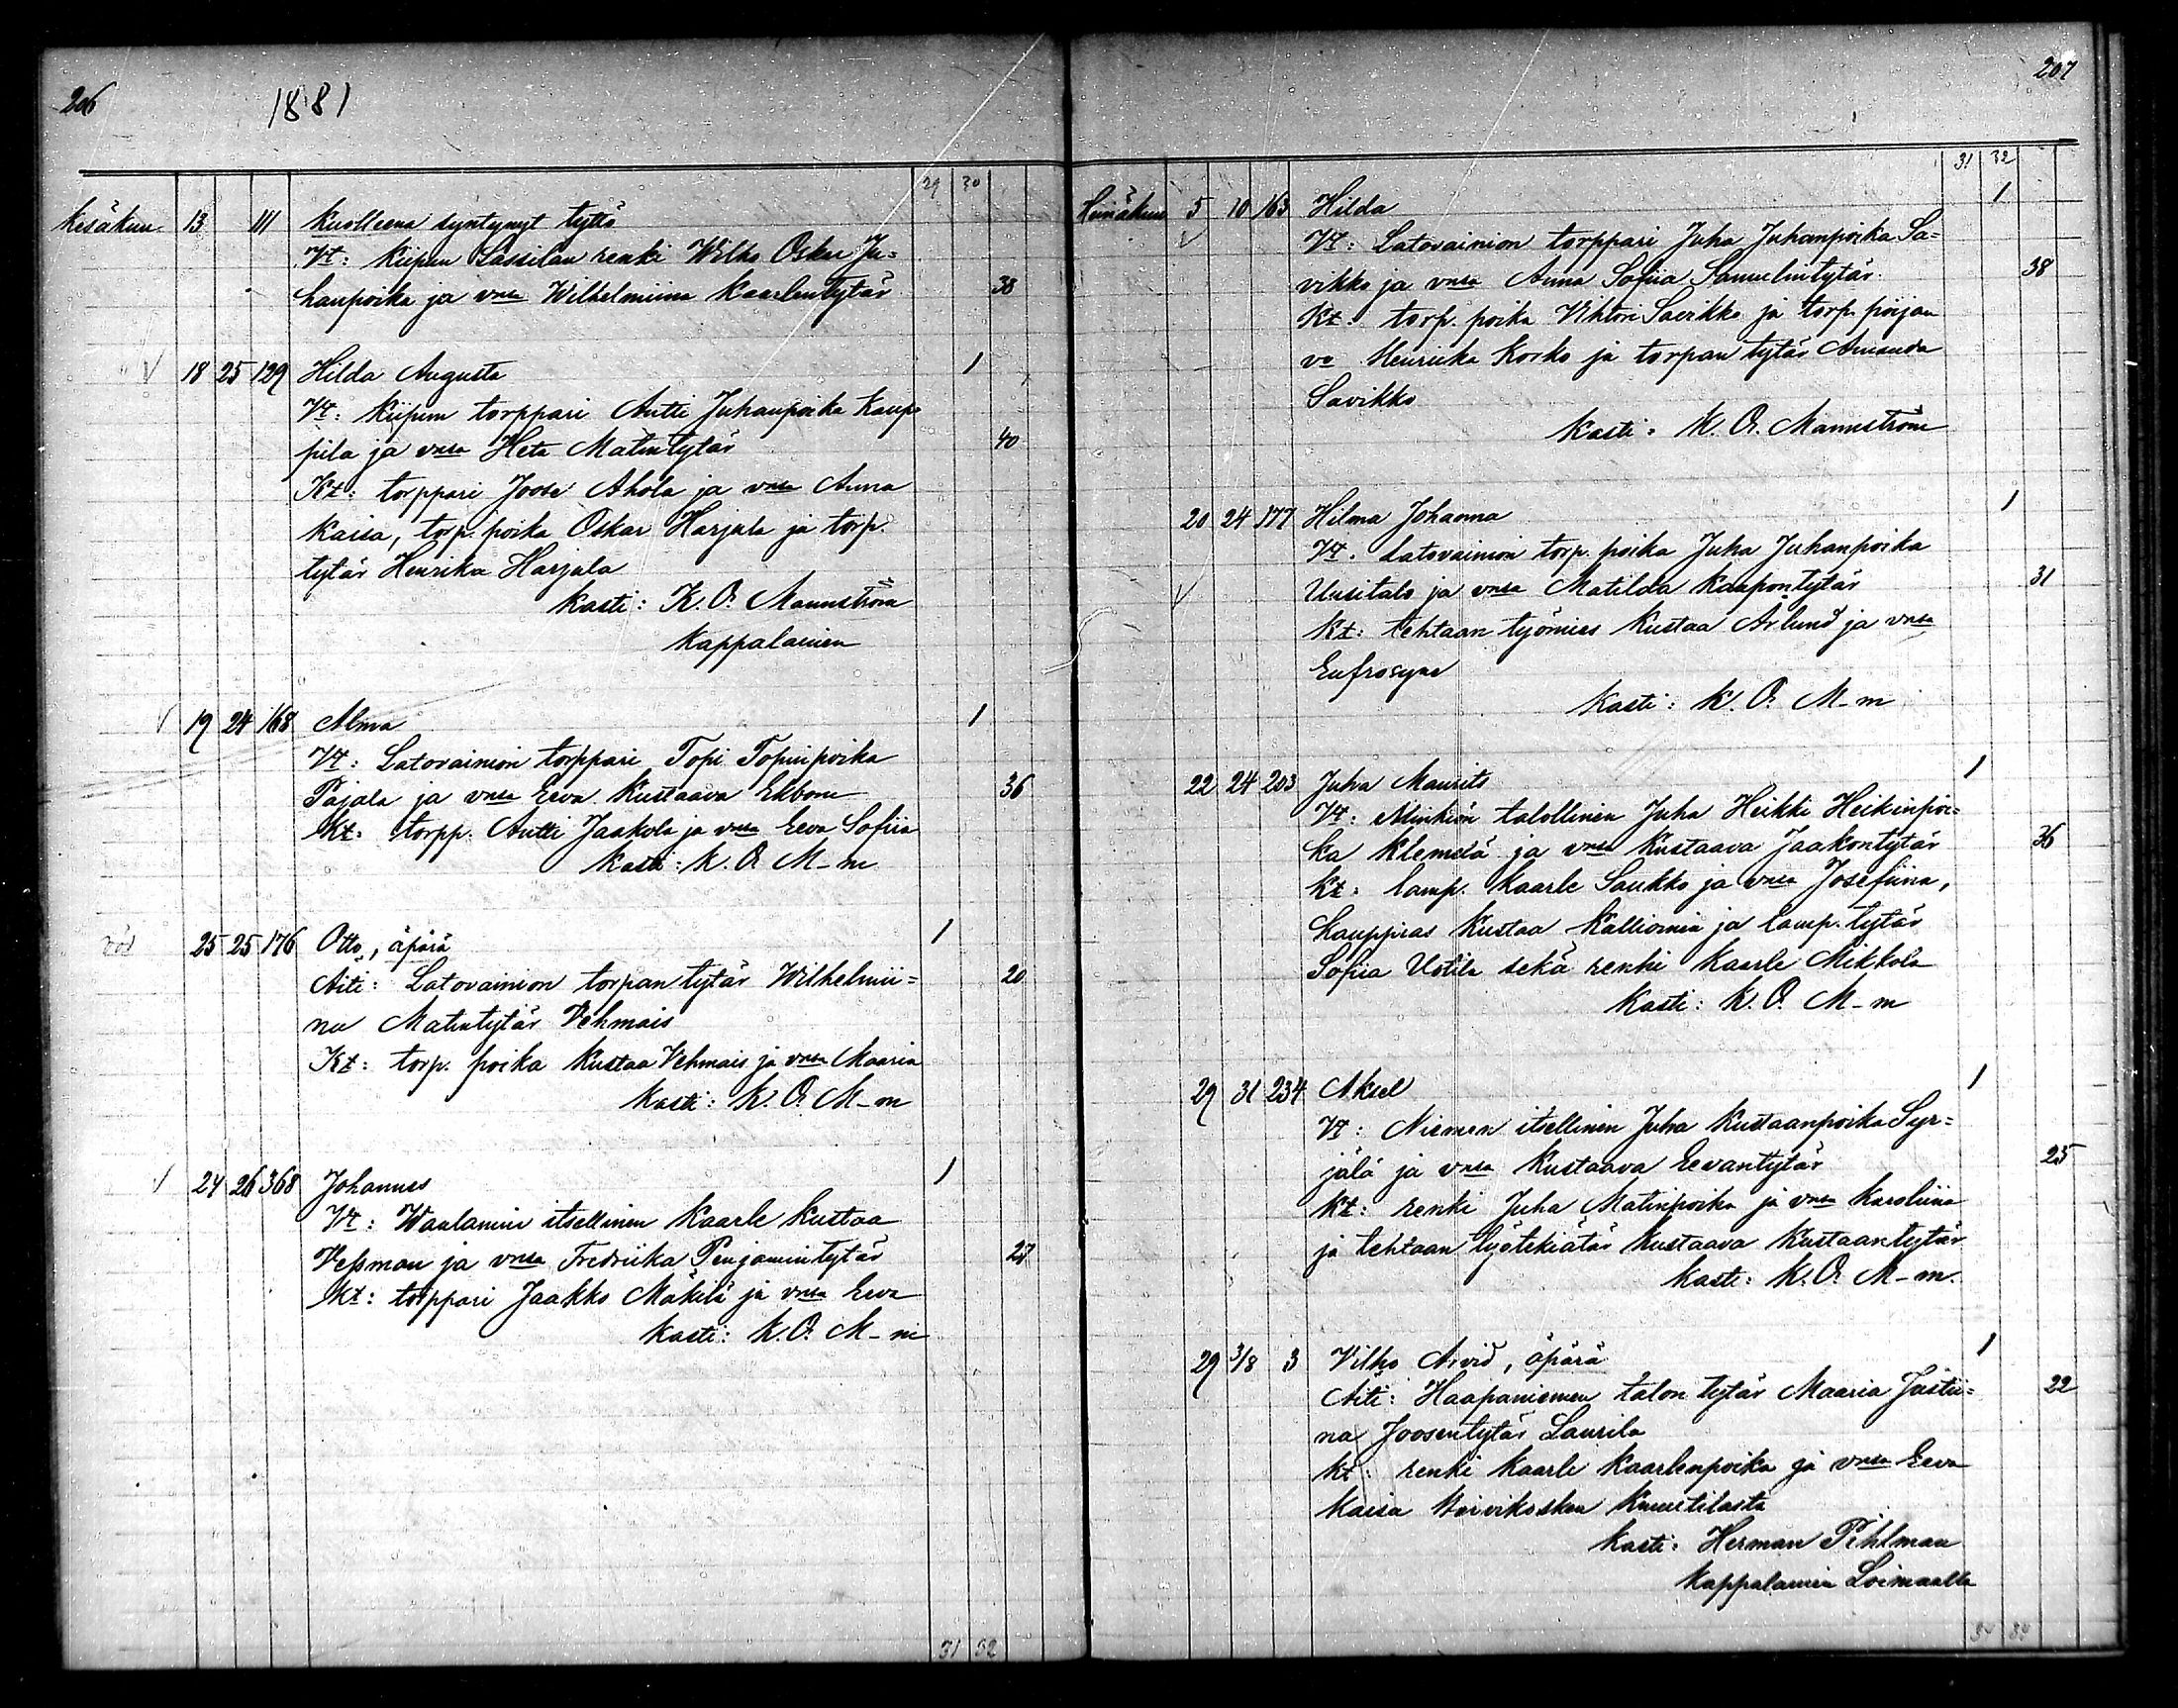 206
1881
29 30
Kesäkuu 13 111 Kuolleena syntynyt tyttö
Vt: Kiipun Lassilan renki Wilho Oskar Ju=
hanpoika ja vnsa Wilhelmiina Kaarlentytär 38
18 25 129 Hilda Augusta 1
Vt: Kiipun torppari Antti Juhanpoika Kaup=
pila ja vnsa Heta Matintytär 40
Kt: torppari Joose Ahola ja vnsa Anna
Kaisa, torp. poika Oskar Harjula ja torp.
tytär Henrika Harjala
Kasti: K. O. Mannström
Kappalainen
19 24 168 Alma 1
Vt: Latovainion torppari Topi Topinpoika
Pajala ja vnsa Eeva Kustaava Ekbom 36
Kt: torpp. Antti Jaakola ja vnsa Eeva Sofiia
Kasti: K. O. M-m
25 25 176 Otto, äpärä 1
Äiti: Latovainion torpan tytär Wilhelmii= 20
na Matintytär Vehmais
Kt: torp. poika Kustaa Vehmais ja vnsa Maaria
Kasti: K. O. M-m
24 26 368 Johannes 1
Vt: itsellinen Kaarle Kustaa
Veßman ja vnsa Fredriika Penjamintytär 27
Kt: torppari Jaakko Mäkelä ja vnsa Eeva
Kasti: K. O. M-m
31 32
207
31 32
Heinäkuu 5 10 163 Hilda 1
Vt: Latovainion torppari Juha Juhanpoika Sa=
vikko ja vnsa Anna Sofiia Samuelintytär 38
Kt: torp. poika Vihtori Savikko ja torp. pojan
vo Henriika Korko ja torpan tytär Amanda
Savikko
Kasti: K. O. Mannström
20 24 177 Hilma Johanna 1
Vt. Latovainion torp. poika Juha Juhanpoika
Uusitalo ja vnsa Matilda Kaapontytär 31
Kt: tehtaan työmies Kustaa Arlund ja vnsa
Eufrosyne
Kasti: K. O. M-m
22 24 203 Juha Maurits 1
Vt: Minkiön talollinen Juha Heikki Heikinpoi=
ka Klemelä ja vnsa Kustaava Jaakontytär 36
Kt: lamp. Kaarle Saukko ja vnsa Josefiina,
Kauppias Kustaa Kallioinen ja lamp. tytär
Sofiia Uotila sekä renki Kaarle Mikkola
Kasti: K. O. M-m
29 31 234 Aksel 1
Vt: Niemen itsellinen Juha Kustaanpoika Syr=
jälä ja vnsa Kustaava Eevantytär 25
Kt: renki Juha Matinpoika ja vnsa Karoliina
ja tehtaan työtekiätär Kustaava Kustaantytär
Kasti: K. O. M-m.
29 3/8 3 Vilho Arvid, äpärä 1
Äiti: Haapaniemen talon tytär Maaria Justii= 22
na Joosentytär Laurila
Kt: renki Kaarle Kaarlenpoika ja vnsa Eeva
Kaisa Knuutilasta
Kasti: Herman Pihlman
Kappalainen Loimaalla